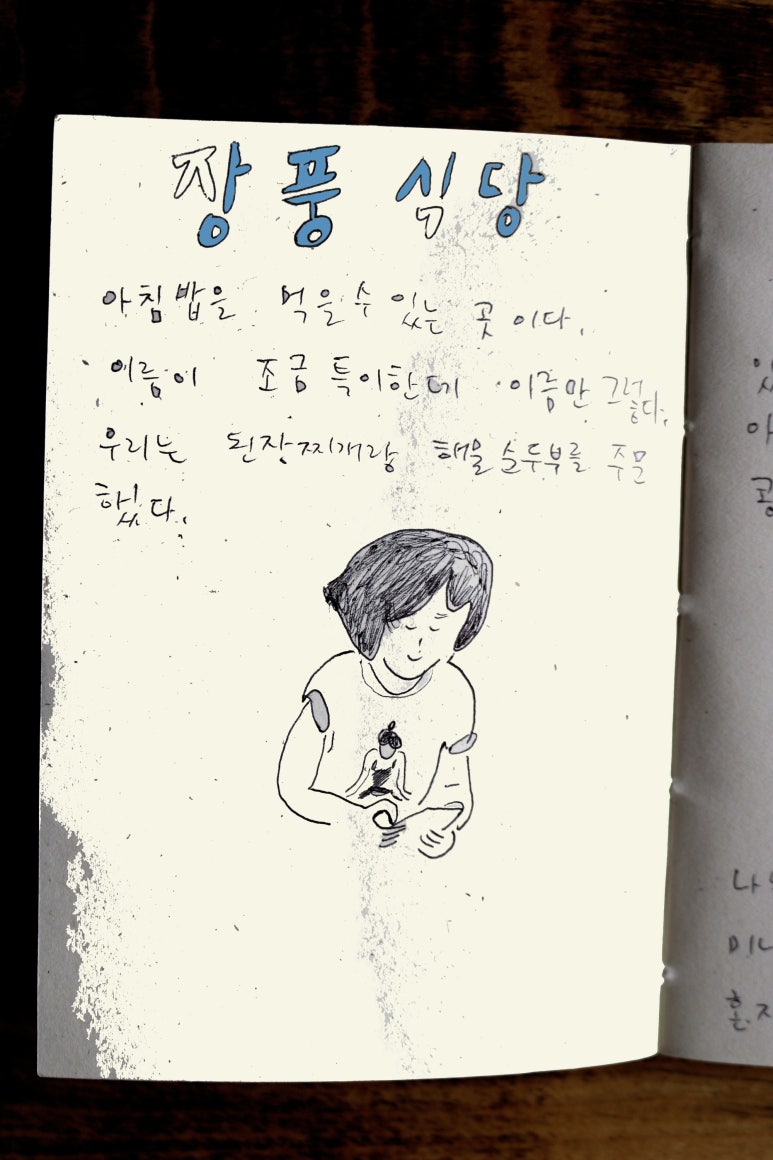 장풍 식당
아침밥을 먹을수 있는 곳이다.
이름이 조금 특이한데 이름만 그렇다.
우리는 된장찌개랑 해물순두부를 주문
하였다.